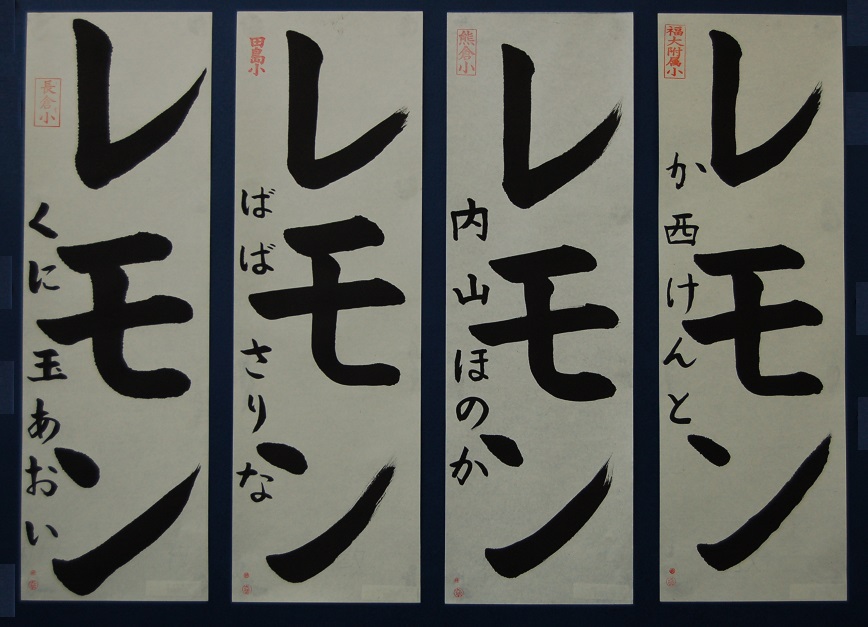 福大附属小
レモン
か西けんと
熊倉小
レモン
内山ほのか
田島小
レモン
ばばさりな
長倉小
レモン
くに玉あおい